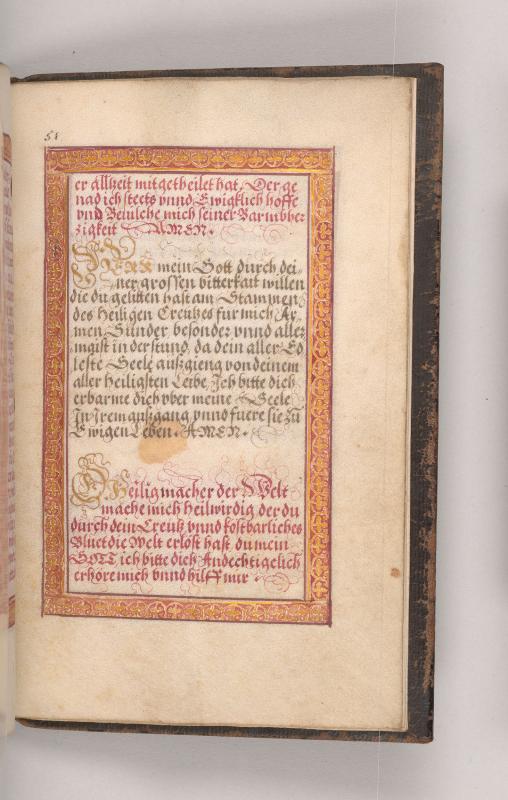 51
er allzeit mitgetheilet hat, Der ge
nad ich steets vnnd Ewigklich hoffe
vnd Beuilche mich seiner Barmher
zigkeit AMEN.
HERR mein Gott durch dei-
ner grossen bitterkait willen
die du gelitten hast am Stammen
des Heiligen Creutzes fur mich Ar-
men Sünder, besonder vnnd aller
maist in der stund, da dein aller Ed
leste Seele außgieng von deinem
aller heiligsten Leibe, Ich bitte dich
erbarme dich vber meine Seele
In Irem außgang vnnd fuere sie zu
Ewigen Leben. AMEN.
O Heiligmacher der Welt
mache mich heilwirdig der du
durch dein Creutz vnnd kostbarliches
Bluet die Welt erlöst hast du mein
GOTT ich bitte dich Andechtigelich
erhöre mich vnnd hilff mir